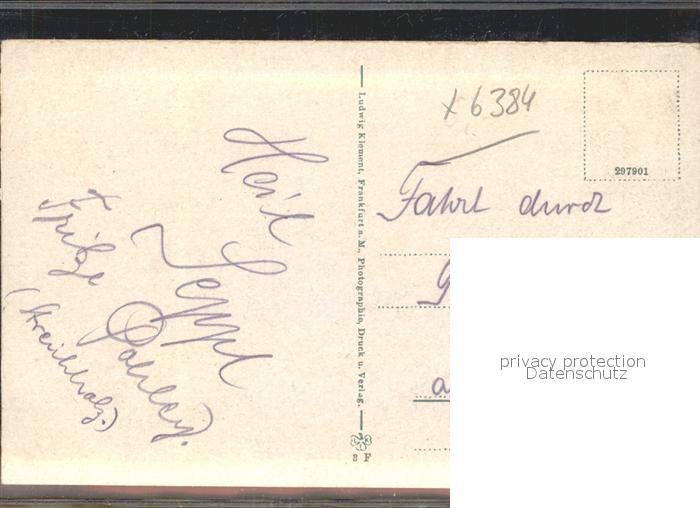 Heil
Seppl
Fritze
(Streichholz.)
Ludwig Klement, Frankfurt a. M., Photographie, Druck u. Verlag.
x 6384
297901
Fahrt durch
G
a
privacy protection
Datenschutz